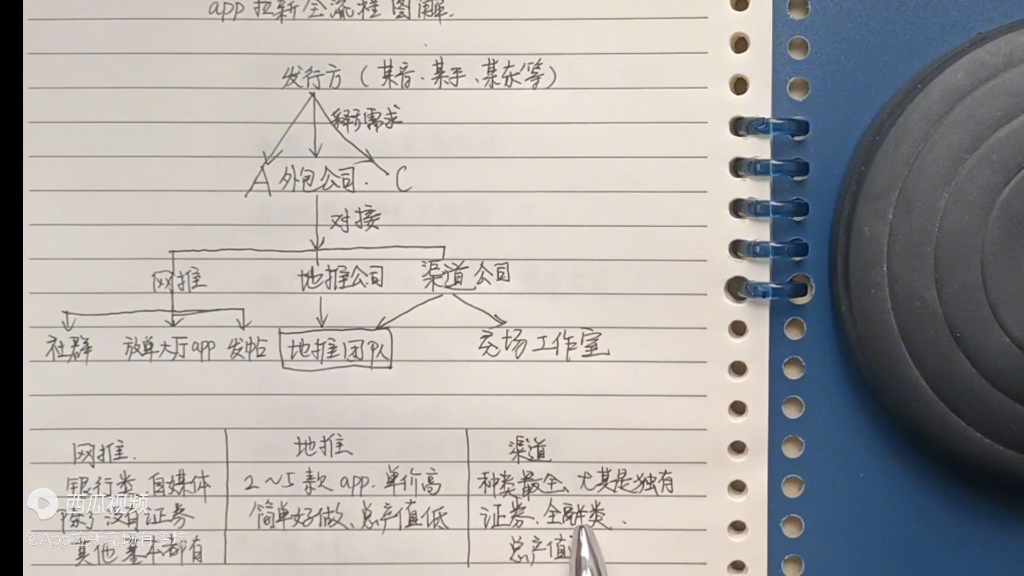 app拉新全流程图解.
发行方（某音、某手、某东等）
需求
A 外包公司. C
对接
网推 地推公司 渠道公司
社群 放单大厅app 发帖 地推团队 充场工作室
网推. 地推 渠道
银行类、自媒体 2～5款app.单价高 种类最全、尤其是独有
除了没有证券 简单好做、总产值低 证券、金融类、
其他基本都有 总产值
西瓜视频